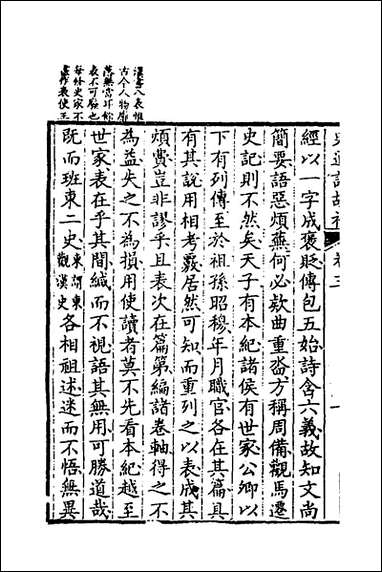 史通訓故補 卷三
經以一字成褒貶傳包五始詩含六義故知文尚
簡要語惡煩蕪何必款曲重沓方稱周備觀馬遷
史記則不然矣天子有本紀諸侯有世家公卿以
下有列傳至於祖孫昭穆年月職官各在其篇具
有其說用相考覈居然可知而重列之以表成其
煩費豈非謬乎且表次在篇第編諸卷軸得之不
為益失之不為損用使讀者莫不先看本紀越至
世家表在乎其間緘而不視語其無用可勝道哉
既而班東二史東謂東觀漢史各相祖述迷而不悟無異
漢書八表惟
古今人物
表不可廢也
每終史家不